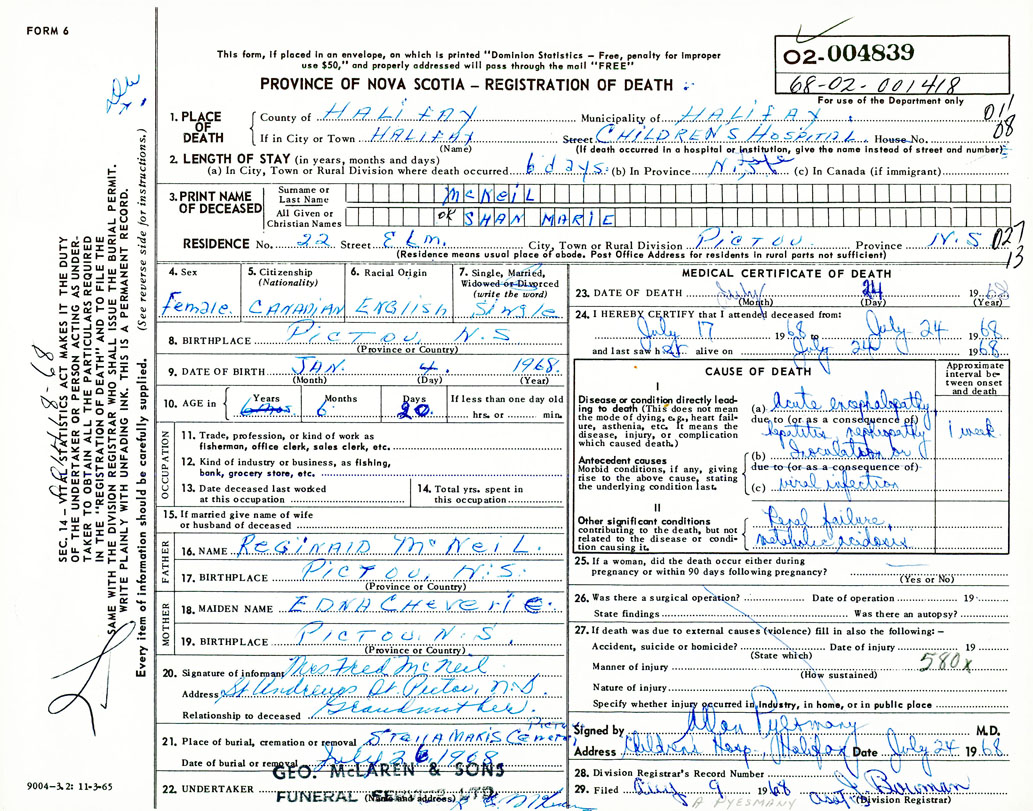 FORM 6
This form, if placed in an envelope, on which is printed "Dominion Statistics – Free, penalty for improper
use $50," and properly addressed will pass through the mail "FREE"
PROVINCE OF NOVA SCOTIA – REGISTRATION OF DEATH
02-004839
68-02-001418
For use of the Department only
1. PLACE OF DEATH
County of HALIFAX Municipality of HALIFAX 011
If in City or Town HALIFAX Street CHILDREN'S HOSPITAL House No. 08
(Name) (If death occurred in a hospital or institution, give the name instead of street and number)
2. LENGTH OF STAY (in years, months and days)
(a) In City, Town or Rural Division where death occurred 6 days. (b) In Province N.S. life (c) In Canada (if immigrant)
3. PRINT NAME OF DECEASED
Surname or Last Name McNEIL
All Given or Christian Names OK SHAN MARIE
RESIDENCE No. 22 Street ELM. City, Town or Rural Division PICTOU. Province N.S 027
(Residence means usual place of abode. Post Office Address for residents in rural parts not sufficient) 13
4. Sex Female.
5. Citizenship (Nationality) CANADIAN
6. Racial Origin ENGLISH
7. Single, Married, Widowed or Divorced (write the word) Single
8. BIRTHPLACE PICTOU, N.S
(Province or Country)
9. DATE OF BIRTH JAN. 4. 1968.
(Month) (Day) (Year)
10. AGE in Years Months 6 Days 20 If less than one day old
hrs. or min.
OCCUPATION
11. Trade, profession, or kind of work as
fisherman, office clerk, sales clerk, etc.
12. Kind of industry or business, as fishing,
bank, grocery store, etc.
13. Date deceased last worked
at this occupation
14. Total yrs. spent in
this occupation
15. If married give name of wife
or husband of deceased
FATHER
16. NAME REGINALD McNEIL.
17. BIRTHPLACE PICTOU, N.S.
(Province or Country)
MOTHER
18. MAIDEN NAME EDNA CHEVERIE.
19. BIRTHPLACE PICTOU. N.S.
(Province or Country)
20. Signature of informant Mrs Fred McNeil
Address St Andrews St. Pictou, N.S.
Relationship to deceased Grandmother.
21. Place of burial, cremation or removal STELLA MARIS Pictou
Date of burial or removal July 26 1968
22. UNDERTAKER GEO. McLAREN & SONS
FUNERAL SERVICE LTD.
(Name and address)
MEDICAL CERTIFICATE OF DEATH
23. DATE OF DEATH July 24 1968
(Month) (Day) (Year)
24. I HEREBY CERTIFY that I attended deceased from:
July 17 1968 to July 24 1968
and last saw her alive on July 24 1968.
CAUSE OF DEATH
Approximate interval between onset and death
I
Disease or condition directly leading to death (This does not mean the mode of dying, e.g., heart failure, asthenia, etc. It means the disease, injury, or complication which caused death.)
(a) Acute encephalopathy,
due to (or as a consequence of)
hepatitis nephropathy
1 week
Antecedent causes
Morbid conditions, if any, giving rise to the above cause, stating the underlying condition last.
(b) Inoculation or
due to (or as a consequence of)
(c) viral infection
II
Other significant conditions
contributing to the death, but not related to the disease or condition causing it.
Renal failure,
metabolic acidosis
25. If a woman, did the death occur either during
pregnancy or within 90 days following pregnancy?
(Yes or No)
26. Was there a surgical operation? Date of operation 19
State findings Was there an autopsy?
27. If death was due to external causes (violence) fill in also the following: –
Accident, suicide or homicide? Date of injury 19
(State which)
Manner of injury 580x
(How sustained)
Nature of injury
Specify whether injury occurred in Industry, in home, or in public place
Signed by Allan Pyesmany M.D.
Address Childrens Hosp., Halifax Date July 24 1968
28. Division Registrar's Record Number
29. Filed Aug 9 1968 Bowman
A PYESMANY (Division Registrar)
SEC. 14 – VITAL STATISTICS ACT MAKES IT THE DUTY
OF THE UNDERTAKER OR PERSON ACTING AS UNDER-
TAKER TO OBTAIN ALL THE PARTICULARS REQUIRED
IN THE "REGISTRATION OF DEATH" AND TO FILE THE
SAME WITH THE DIVISION REGISTRAR WHO SHALL ISSUE THE BURIAL PERMIT.
WRITE PLAINLY WITH UNFADING INK. THIS IS A PERMANENT RECORD.
Every item of information should be carefully supplied. (See reverse side for instructions.)
9004-3.2: 11-3-65